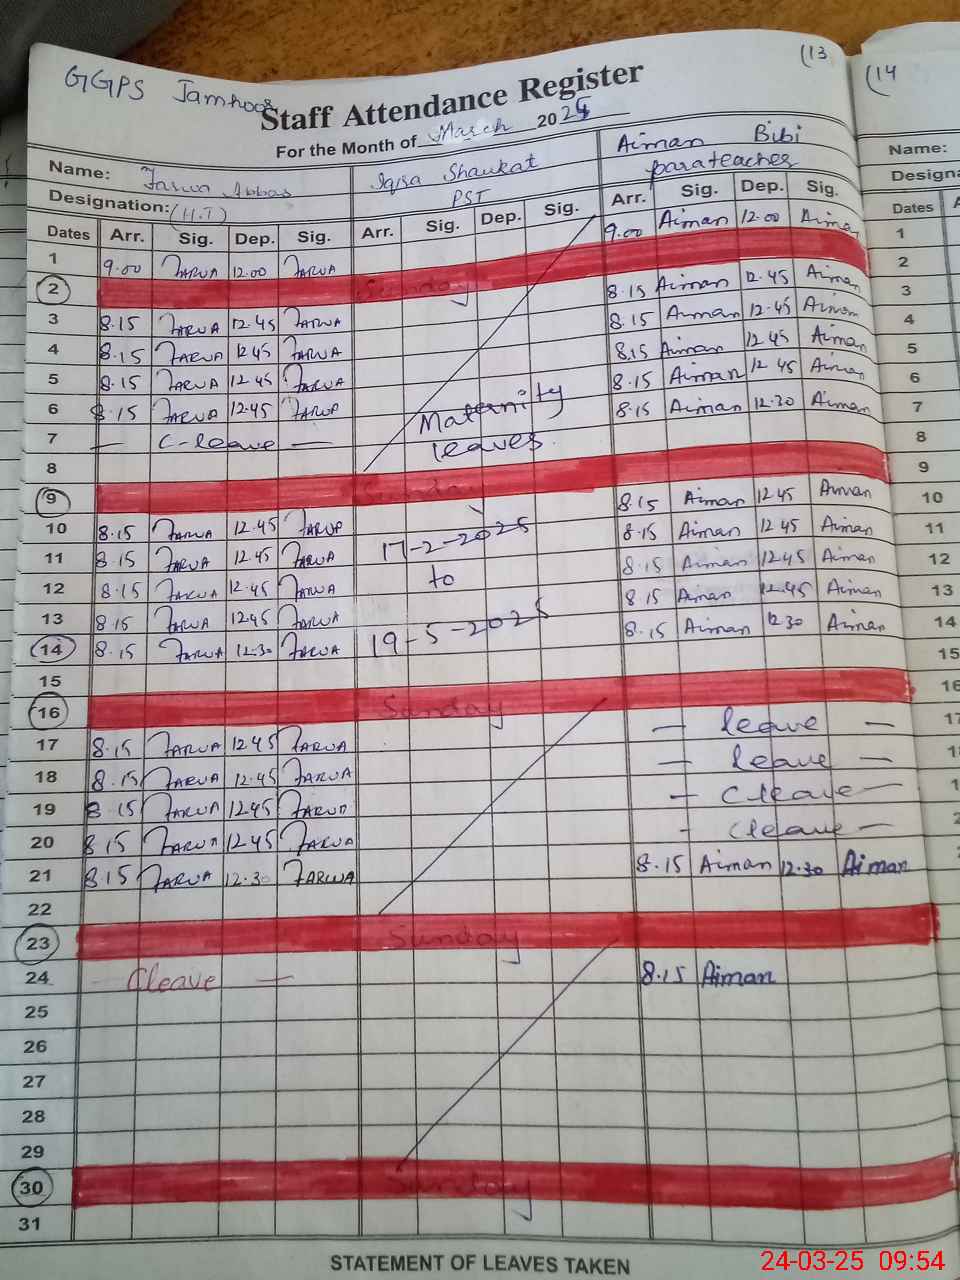 (13
(14
GGPS Jamhoor
Staff Attendance Register
For the Month of March 2025
Name: Farwa Abbas Iqsa Shaukat Aiman Bibi
Designation: (H.T) PST parateacher
Dates Arr. Sig. Dep. Sig. Arr. Sig. Dep. Sig. Arr. Sig. Dep. Sig.
1 9.00 FARWA 12.00 FARWA 9.00 Aiman 12.00 Aiman
2 Sunday
3 8.15 FARWA 12.45 FARWA 8.15 Aiman 12.45 Aiman
4 8.15 FARWA 12 45 FARWA 8.15 Aiman 12.45 Aiman
5 8.15 FARWA 12 45 FARWA 8.15 Aiman 12 45 Aiman
6 8.15 FARWA 12.45 FARWA 8.15 Aiman 12 45 Aiman
7 — C-leave — Maternity 8.15 Aiman 12.30 Aiman
8 leaves.
9 Sunday
10 8.15 FARWA 12.45 FARWA 8.15 Aiman 12 45 Aiman
11 8.15 FARWA 12.45 FARWA 17-2-2025 8.15 Aiman 12 45 Aiman
12 8.15 FARWA 12.45 FARWA to 8.15 Aiman 12.45 Aiman
13 8.15 FARWA 12.45 FARWA 8.15 Aiman 12.45 Aiman
14 8.15 FARWA 12.30 FARWA 19-5-2025 8.15 Aiman 12.30 Aiman
15
16 Sunday
17 8.15 FARWA 12 45 FARWA — leave —
18 8.15 FARWA 12.45 FARWA — leave —
19 8.15 FARWA 12.45 FARWA — C leave —
20 8.15 FARWA 12.45 FARWA - Cleave —
21 8.15 FARWA 12.30 FARWA 8.15 Aiman 12.30 Aiman
22
23 Sunday
24 — Cleave — 8.15 Aiman
25
26
27
28
29
30 Sunday
31
STATEMENT OF LEAVES TAKEN
Name:
Designa
Dates
1
2
3
4
5
6
7
8
9
10
11
12
13
14
15
16
24-03-25 09:54